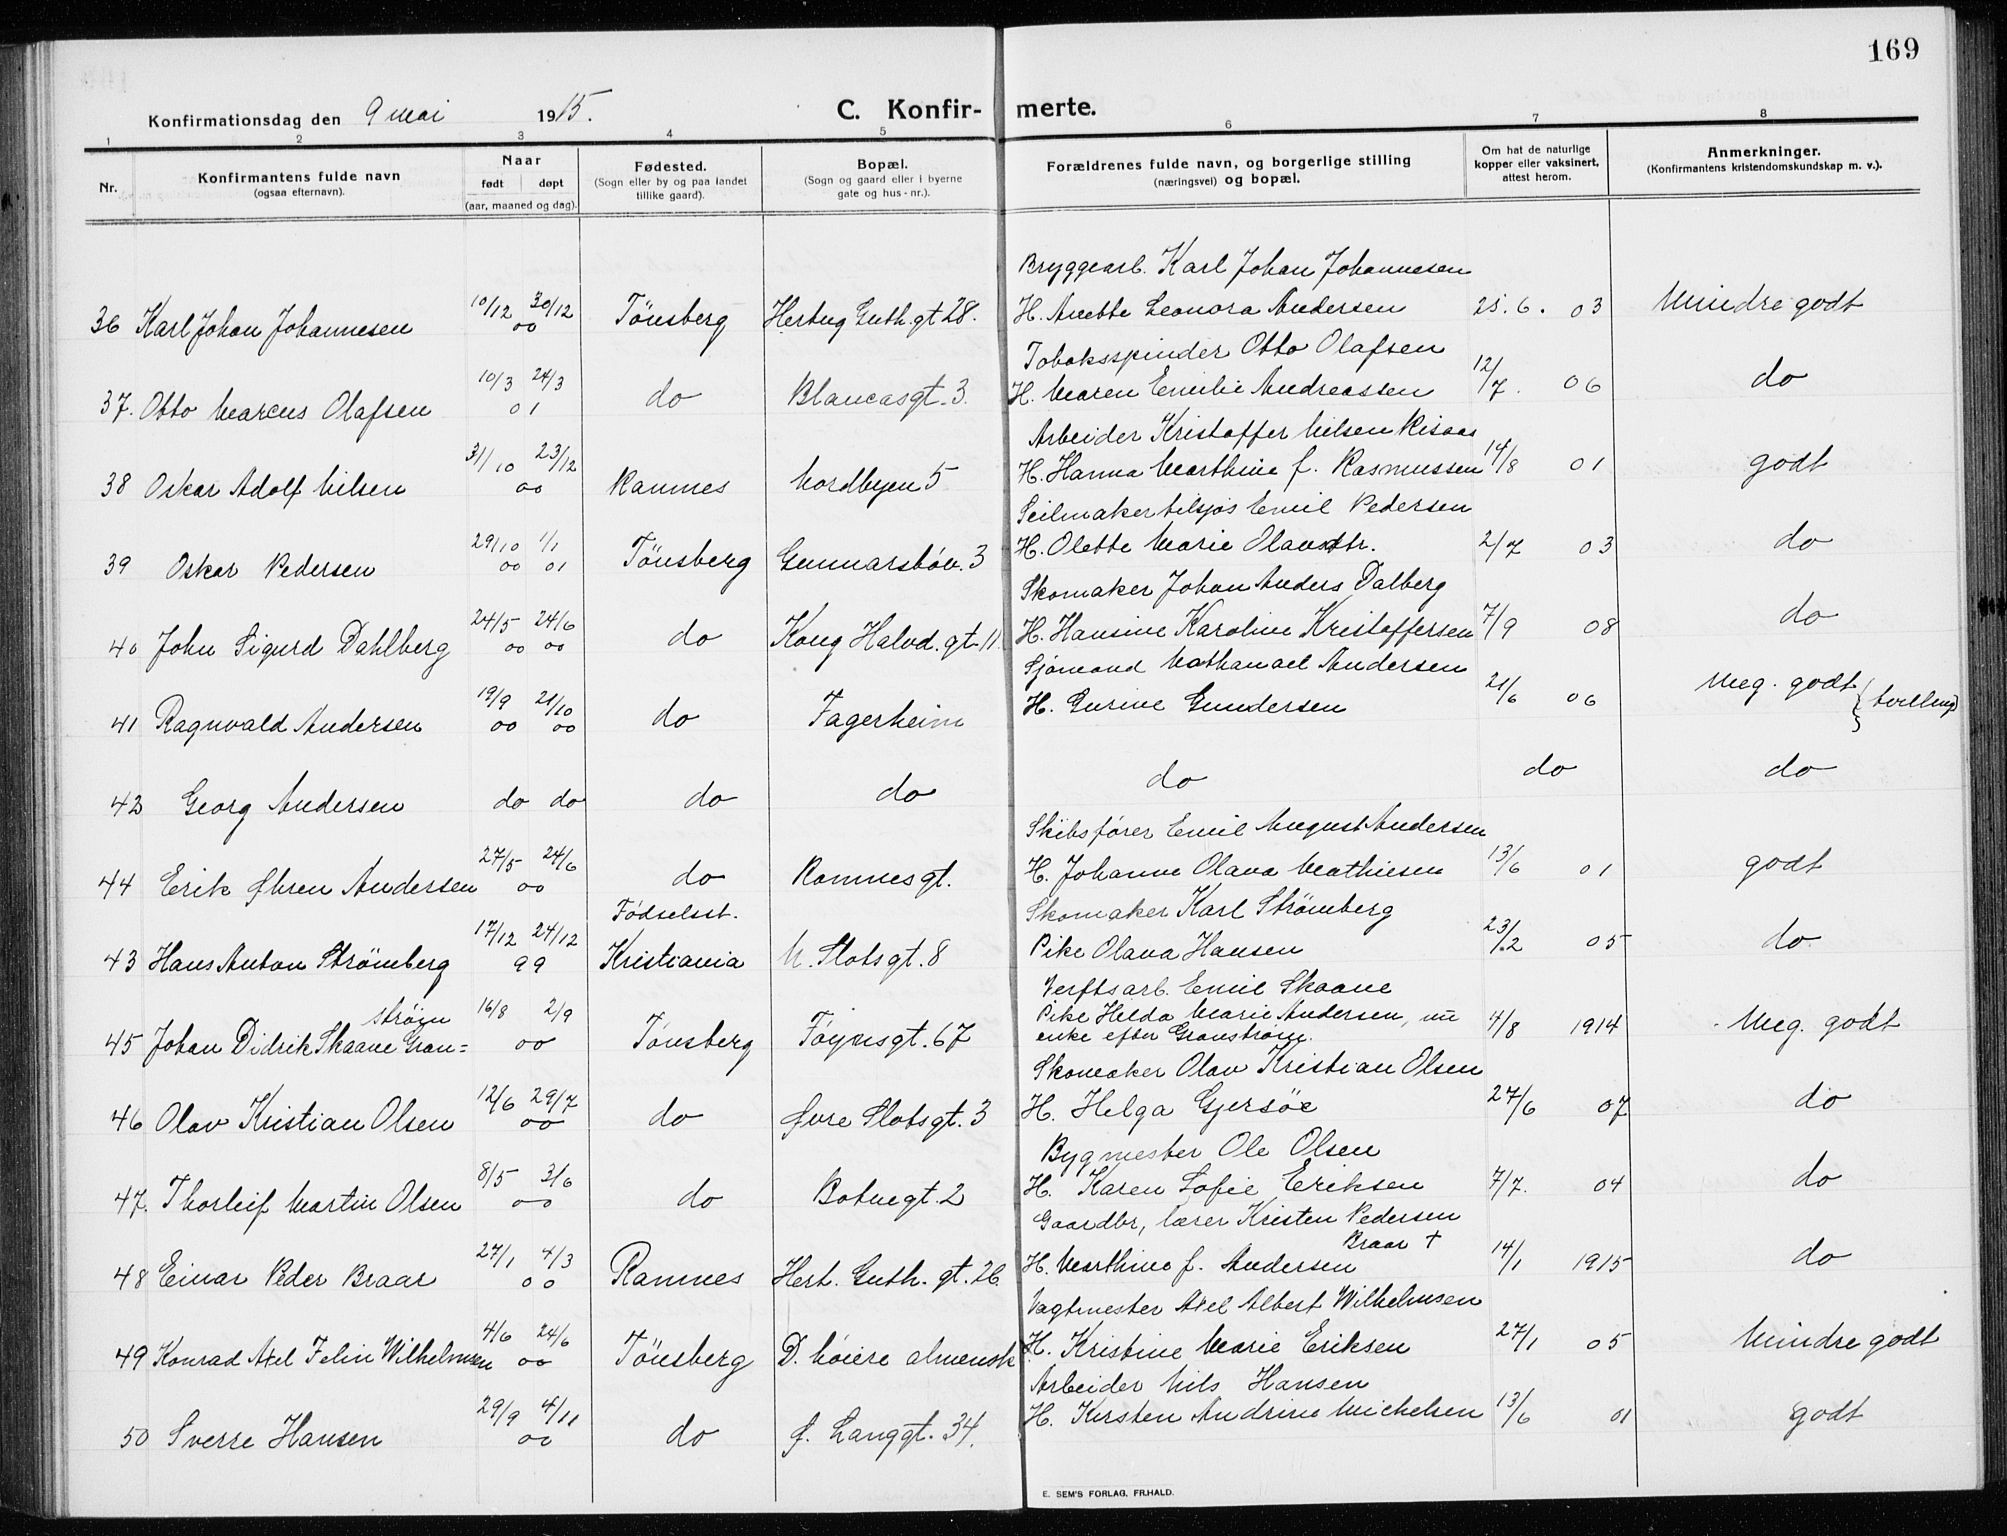 169
Konfirmationsdag den 9 mai 1915.
C. Konfir- merte.
1 2 3 4 5 6 7 8
Nr.
Konfirmantens fulde navn
(ogsaa efternavn).
Naar
født døpt
(aar, maaned og dag).
Fødested.
(Sogn eller by og paa landet
tillike gaard).
Bopæl.
(Sogn og gaard eller i byerne
gate og hus-nr.).
Forældrenes fulde navn, og borgerlige stilling
(næringsvei) og bopæl.
Om hat de naturlige
kopper eller vaksinert,
attest herom.
Anmerkninger.
(Konfirmantens kristendomskundskap m. v.).
Bryggearb. Karl Johan Johannesen
36 Karl Johan Johannesen 10/12 30/12 00 Tönsberg Hertug Guth. gt 28. H. Anette Leonora Andersen 25. 6. 03 Mindre godt
Tobaksspinder Otto Olafsen
37. Otto Marcus Olafsen 10/3 24/3 01 do Blancasgt. 3. H. Maren Emilie Andreassen 12/7. 06 do
Arbeider Kristoffer Nilsen Risaas
38 Oskar Adolf Nilsen 31/10 23/12 00 Ramnes Nordbyen 5 H. Hanna Marthine f. Rasmussen 14/8 01 godt
Seilmaker Emil Pedersen
39 Oskar Pedersen 29/10 00 1/1 01 Tönsberg Gunnarsböv. 3 H. Olette Marie Olavsdtr. 2/7 03 do
Skomaker Johan Anders Dalberg
40 John Sigurd Dahlberg 24/5 00 24/6 00 do Kong Halvd. gt. 11. H. Hansine Karoline Kristoffersen 7/9 08 do
Sjömand Nathanael Andersen
41 Ragnvald Andersen 19/9 00 21/10 00 do Fagerheim H. Gurine Gundersen 21/6 06 Meg. godt { tvilling
42 Georg Andersen do do do do do do do
Skibsfører Emil August Andersen
44 Erik Øhren Andersen 27/5 24/6 00 do Ramnesgt. H. Johanne Olava Mathiesen 13/6 01 godt
Födselsst. Skomaker Karl Strömberg
43 Hans Anton Strömberg 17/12 24/12 99 Kristiania N. Slotsgt. 8 Pike Olava Hansen 23/2 05 do
Verftsarb. Emil Skaane
45 Johan Didrik Skaane Gran= ström 16/8 2/9 00 Tönsberg Föynsgt. 67 Pike Hilda Marie Andersen, nu
enke efter Granström. 4/8 1914 Meg. godt
Skomaker Olav Kristian Olsen
46 Olav Kristian Olsen 12/6 29/7 00 do Øvre Slotsgt. 3 H. Helga Gjersöe 27/6 07 do
Bygmester Ole Olsen
47. Thorleif Martin Olsen 8/5 3/6 00 do Botnegt. 2 H. Karen Sofie Eriksen 7/7. 04 do
Gaardbr, lærer Kristen Pedersen
Braar †
48 Einar Peder Braar 27/1 4/3 00 Ramnes Hert. Guth. gt. 26 H. Marthine f. Andersen 14/1 1915 do
Vagtmester Axel Albert Wilhelmsen
49 Konrad Axel Felin Wilhelmsen 4/6 24/6 00 Tönsberg D. höiere almensk. H. Kristine Marie Eriksen 27/1 05 Mindre godt
Arbeider Nils Hansen
50 Sverre Hansen 29/9 4/11 00 do Ø. Langgt. 34. H. Kirsten Andrine Michelsen 13/6 01 godt
E. SEM'S FORLAG, FR.HALD.